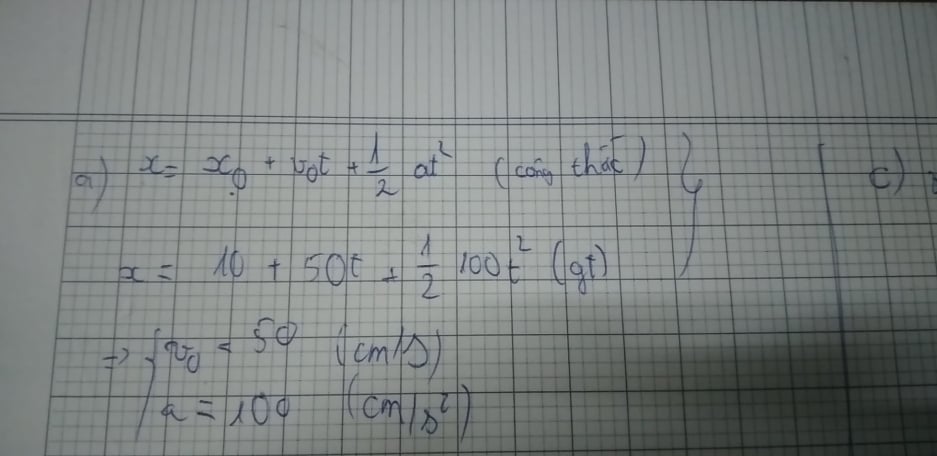 a) x = x₀ + v₀t + 1/2 at² (công thức)
c)
x = 10 + 50t + 1/2 100t² (gt)
=> { v₀ = 50 (cm/s)
a = 100 (cm/s²)